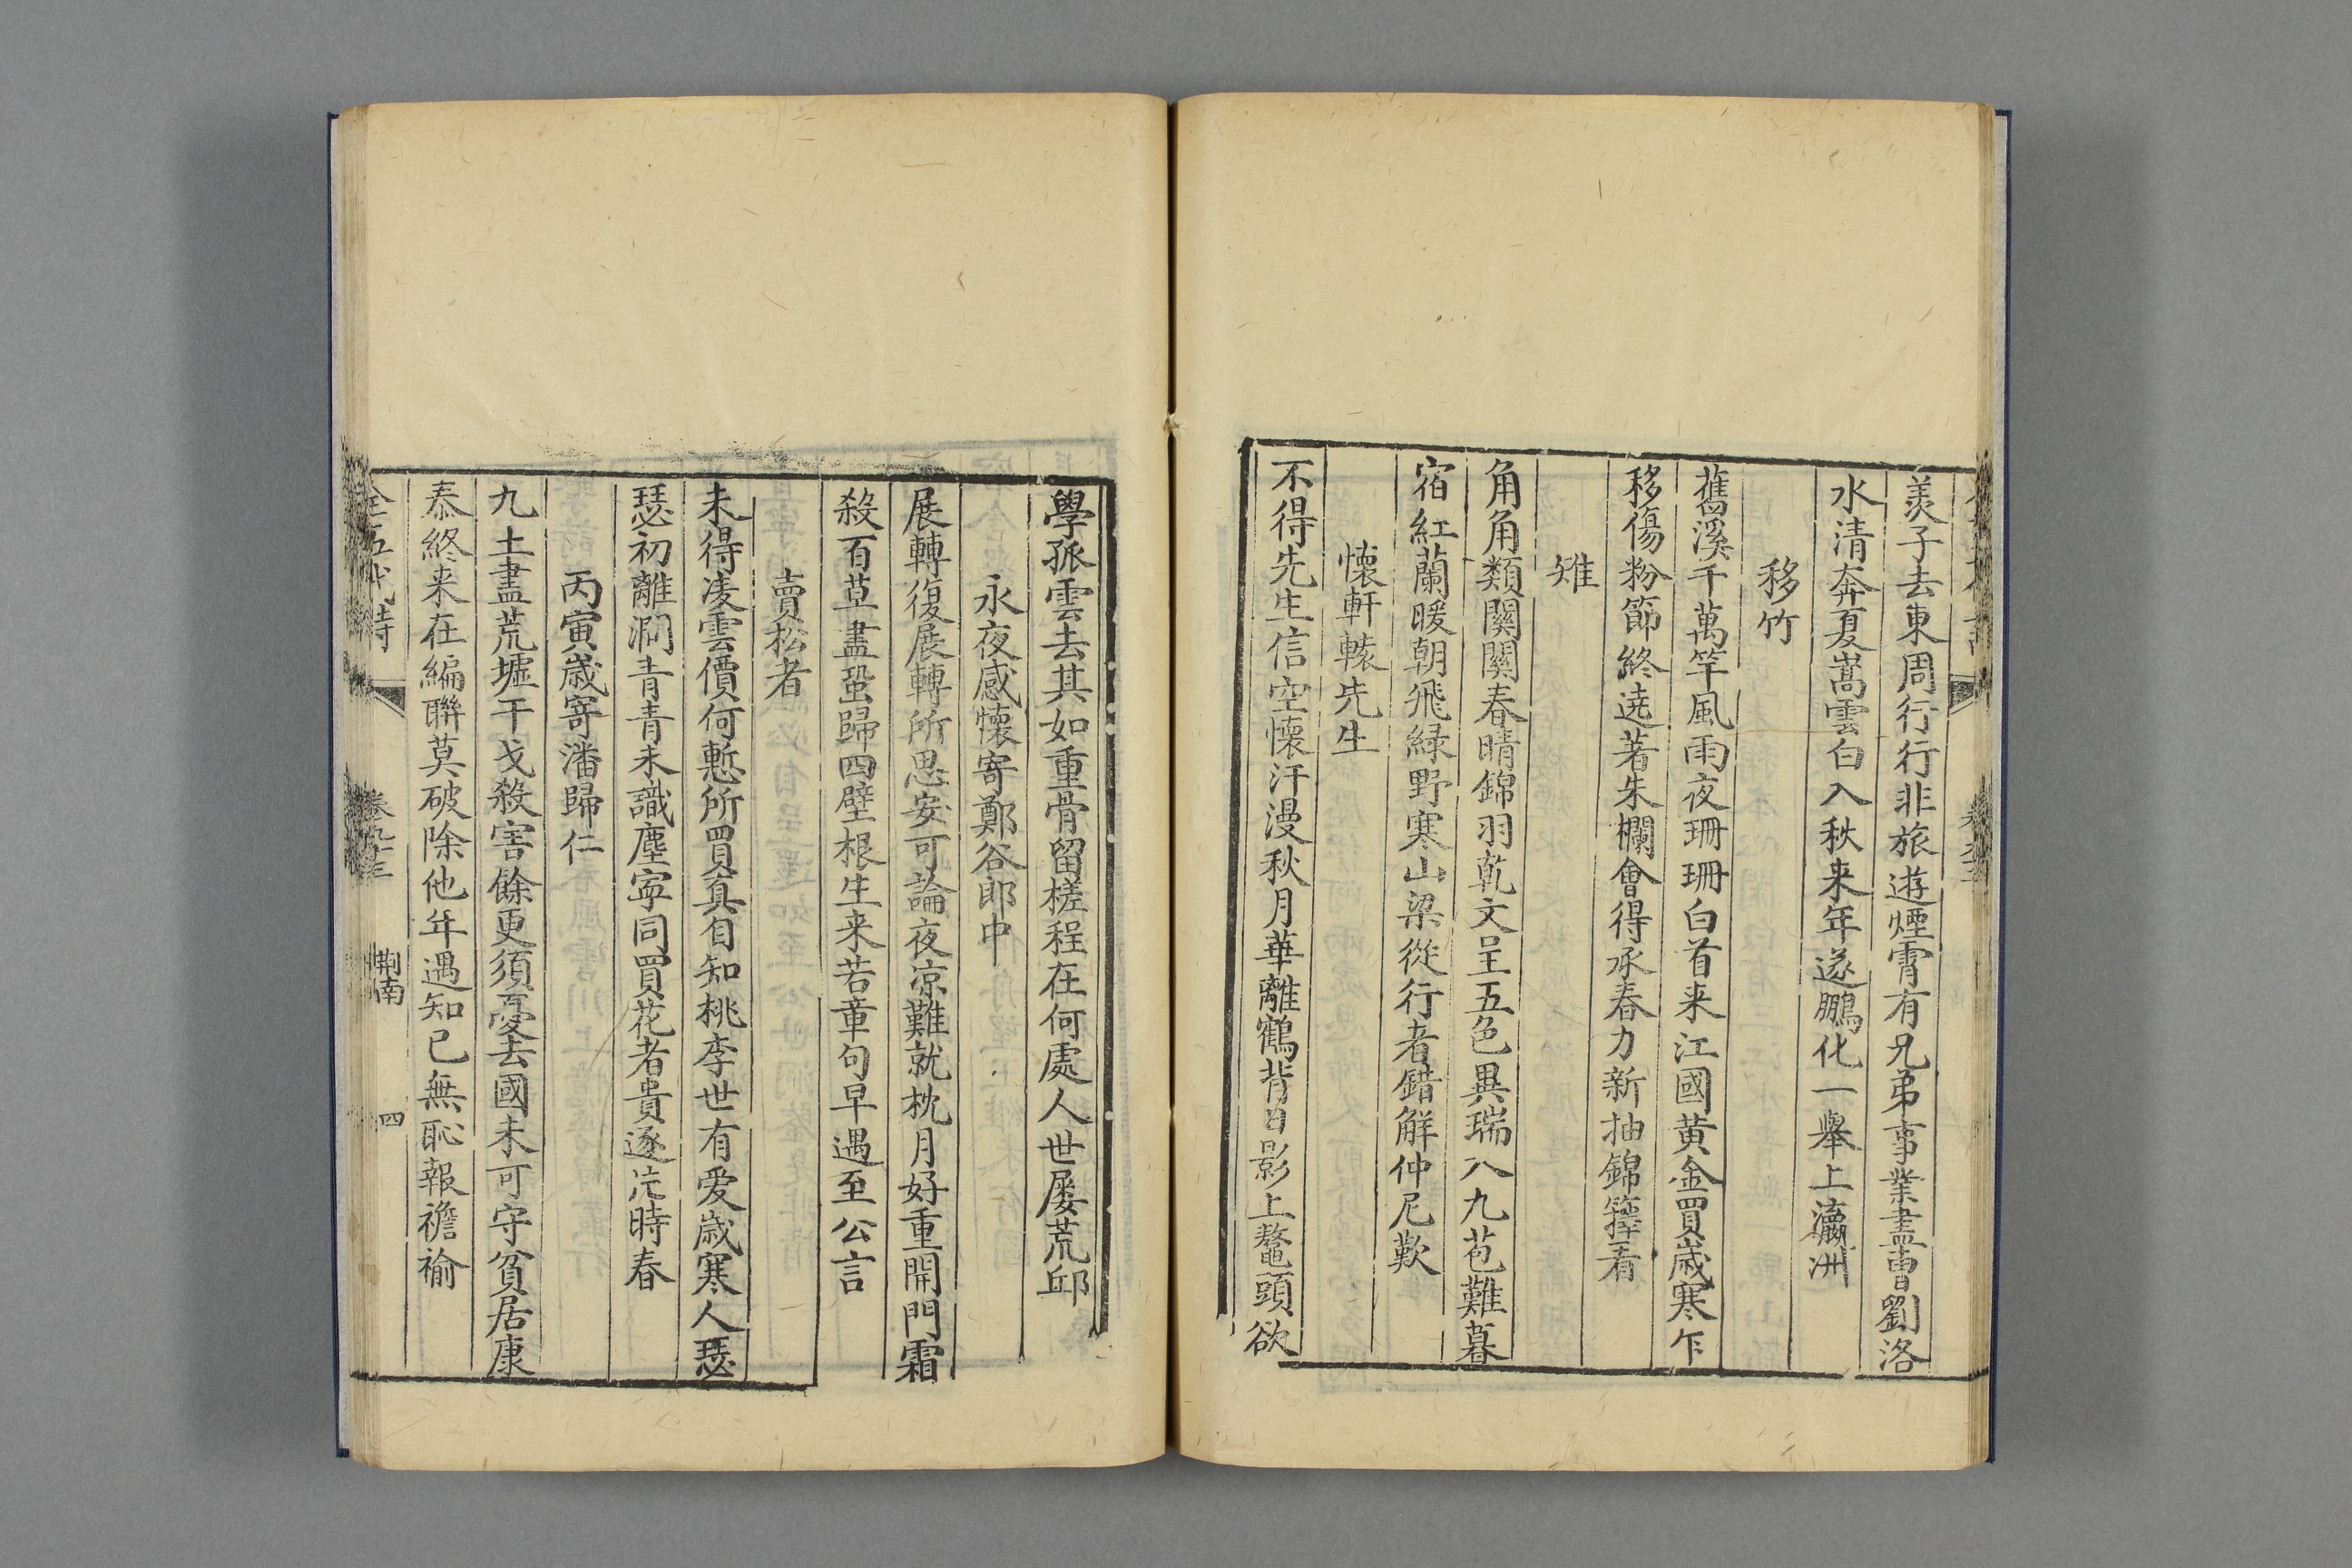 羨子去東周行行非旅遊煙霄有兄弟事業盡曹劉洛
水清奔夏嵩雲白入秋来年遂鵬化一舉上瀛洲
移竹
舊溪千萬竿風雨夜珊珊白首来江國黄金買歳寒乍
移傷粉節終遶著朱欄會得承春力新抽錦籜看
雉
角角類關關春晴錦羽乾文呈五色異瑞八九苞難暮
宿紅蘭暖朝飛緑野寒山梁從行者錯解仲尼歎
懷軒轅先生
不得先生信空懷汗漫秋月華離鶴背日影上鼇頭欲
學孤雲去其如重骨留槎程在何處人世屡荒邱
永夜感懷寄鄭谷郎中
展轉復展轉所思安可論夜凉難就枕月好重開門霜
殺百草盡蛩歸四壁根生来苦章句早遇至公言
賣松者
未得凌雲價何慙所買真自知桃李世有爱歳寒人瑟
瑟初離澗青青未識塵寧同買花者貴逐片時春
丙寅歳寄潘歸仁
九土盡荒墟干戈殺害餘更須憂去國未可守貧居康
泰終来在編聯莫破除他年遇知己無恥報襜褕
全五代詩 卷九十三 荆南 四